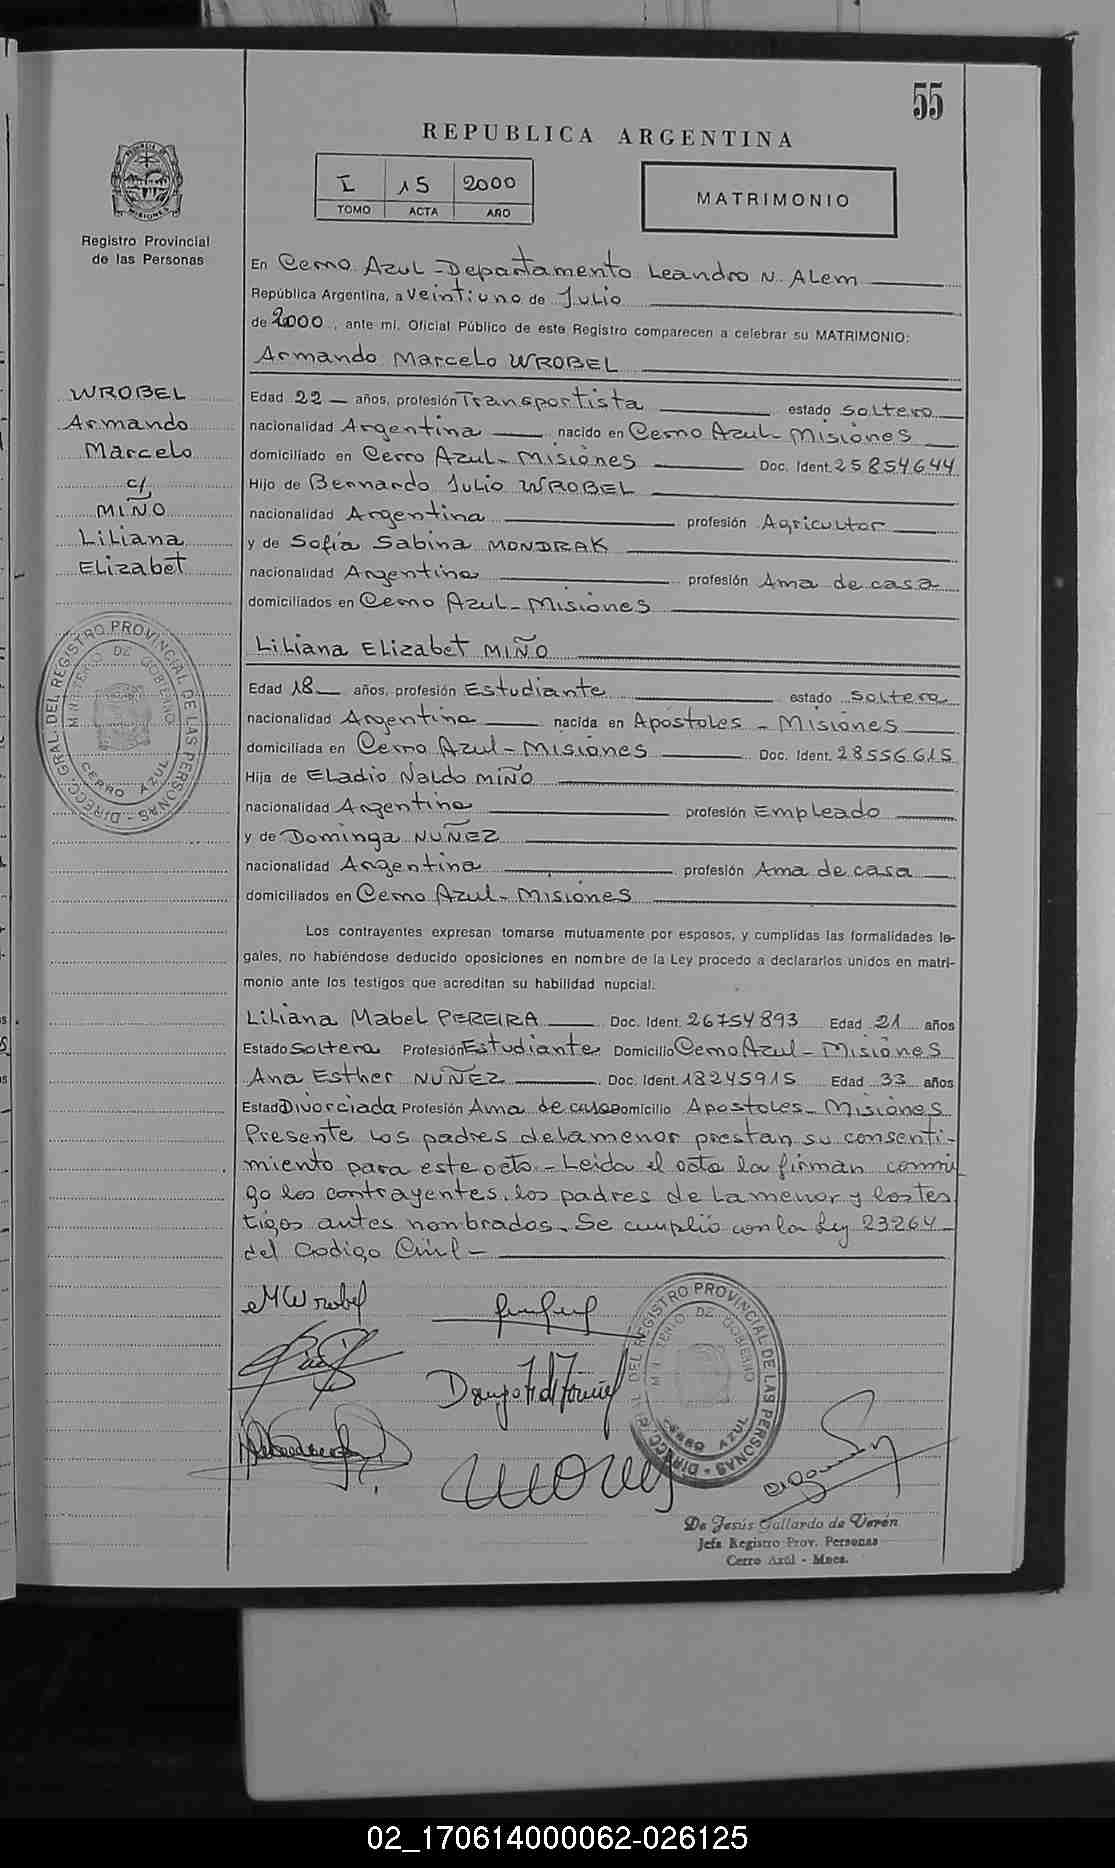 55
REPUBLICA ARGENTINA
I 15 2000
TOMO ACTA AÑO
MATRIMONIO
PROVINCIA DE MISIONES
Registro Provincial
de las Personas
En Cerro Azul - Departamento Leandro N. Alem
República Argentina, a Veintiuno de Julio
de 2000, ante mí, Oficial Público de este Registro comparecen a celebrar su MATRIMONIO:
Armando Marcelo WROBEL
WROBEL
Armando
Marcelo
c/
MIÑO
Liliana
Elizabet
Edad 22 años, profesión Transportista estado soltero
nacionalidad Argentina nacido en Cerro Azul - Misiones
domiciliado en Cerro Azul - Misiones Doc. Ident. 25854644
Hijo de Bernardo Julio WROBEL
nacionalidad Argentina profesión Agricultor
y de Sofía Sabina MONDRAK
nacionalidad Argentina profesión Ama de casa
domiciliados en Cerro Azul - Misiones
Liliana Elizabet MIÑO
Edad 18 años, profesión Estudiante estado soltera
nacionalidad Argentina nacida en Apostoles - Misiones
domiciliada en Cerro Azul - Misiones Doc. Ident. 28556615
Hija de Eladio Naldo MIÑO
nacionalidad Argentina profesión Empleado
y de Dominga NUÑEZ
nacionalidad Argentina profesión Ama de casa
domiciliados en Cerro Azul - Misiones
DIRECC. GRAL. DEL REGISTRO PROVINCIAL DE LAS PERSONAS
MINISTERIO DE GOBIERNO
CERRO AZUL
Los contrayentes expresan tomarse mutuamente por esposos, y cumplidas las formalidades le-
gales, no habiéndose deducido oposiciones en nombre de la Ley procedo a declararlos unidos en matri-
monio ante los testigos que acreditan su habilidad nupcial.
Liliana Mabel PEREIRA Doc. Ident. 26754893 Edad 21 años
Estado Soltera Profesión Estudiante Domicilio Cerro Azul - Misiones
Ana Esther NUÑEZ Doc. Ident. 18245915 Edad 33 años
Estado Divorciada Profesión Ama de casa Domicilio Apostoles - Misiones
Presente los padres de la menor prestan su consenti-
miento para este acto. - Leida el acta la firman conmi
go los contrayentes, los padres de la menor y los tes
tigos antes nombrados. Se cumplió con la Ley 23264
del Codigo Civil -
MWrobel
DIRECC. GRAL. DEL REGISTRO PROVINCIAL DE LAS PERSONAS
MINISTERIO DE GOBIERNO
CERRO AZUL
De Jesús Gallardo de Verón
Jefa Registro Prov. Personas
Cerro Azúl - Mnes.
02_170614000062-026125